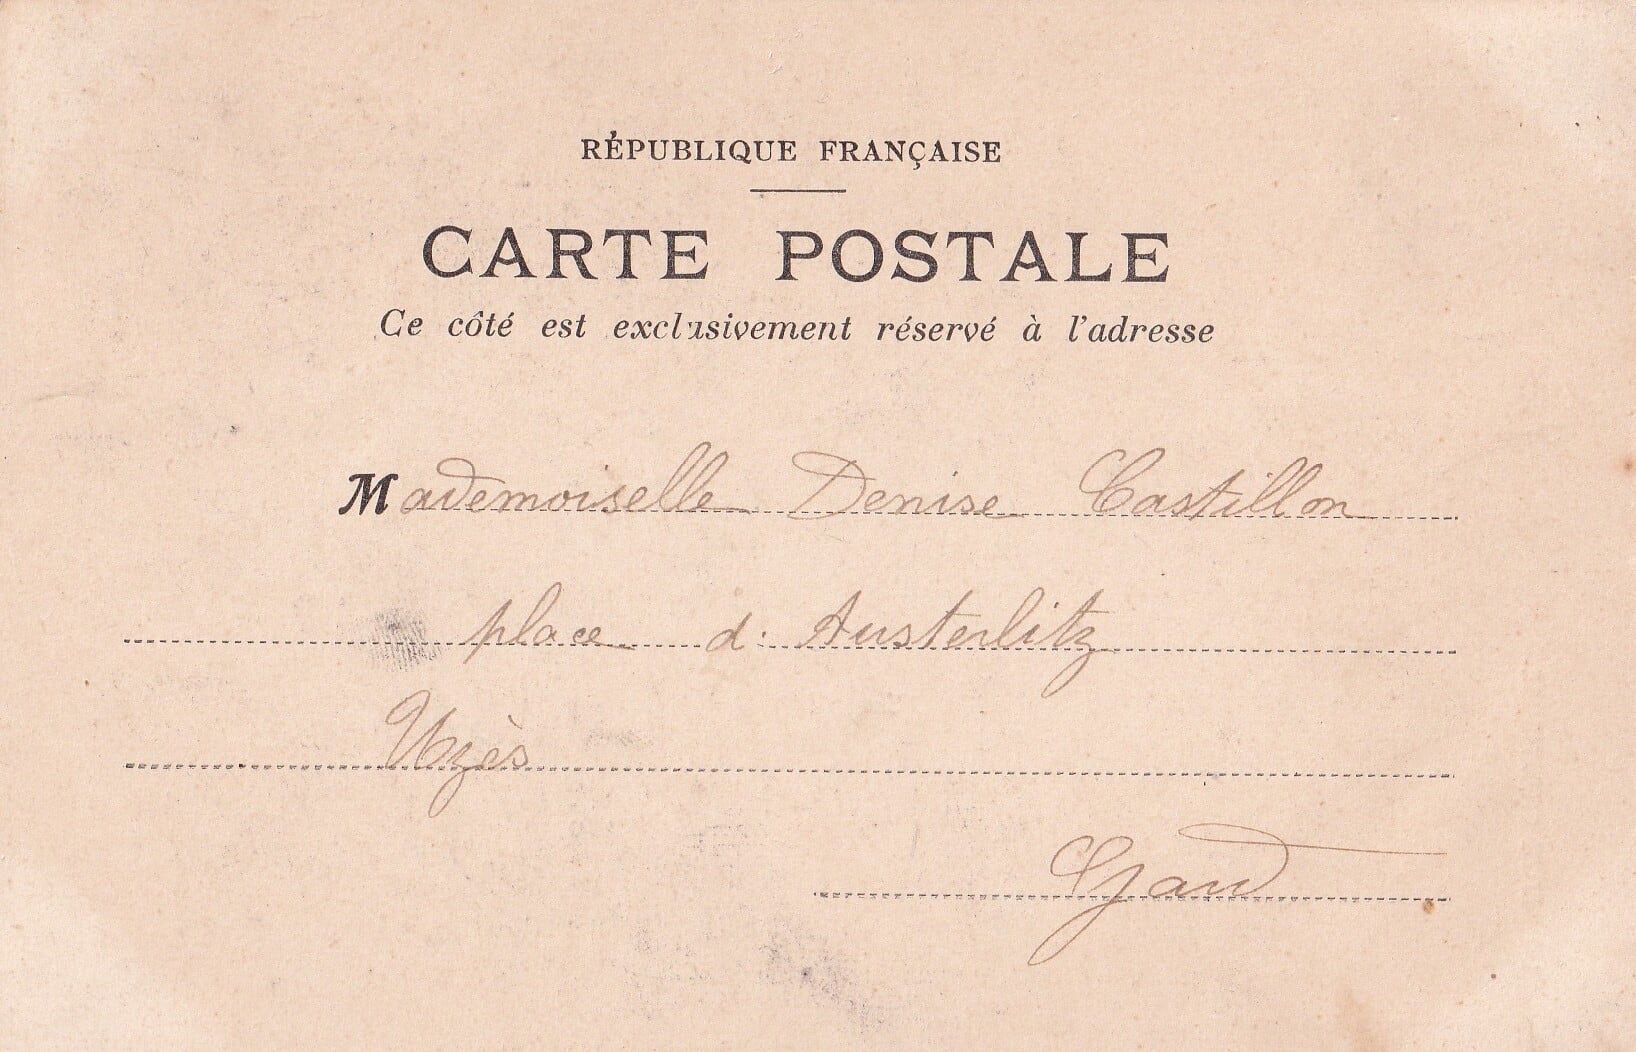 RÉPUBLIQUE FRANÇAISE
CARTE POSTALE
Ce côté est exclusivement réservé à l'adresse
Mademoiselle Denise Castillon
place d'Austerlitz
Uzès
Gard